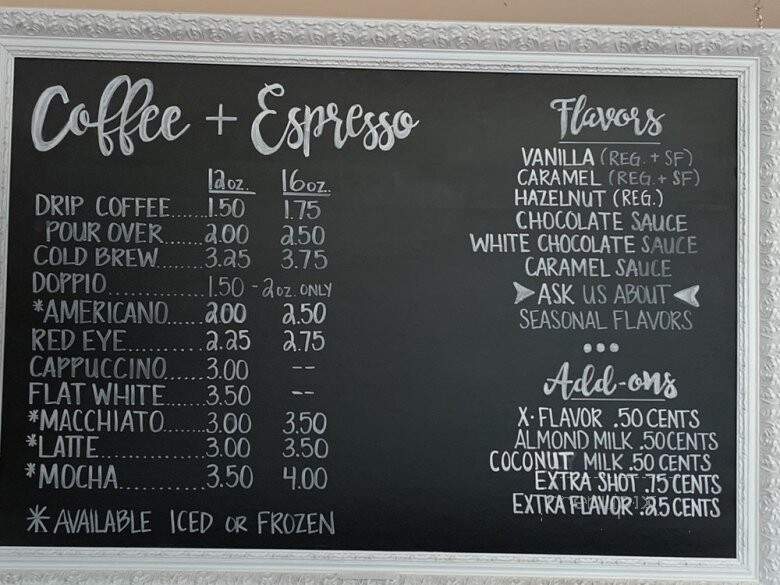 Coffee + Espresso
12oz. 16oz.
DRIP COFFEE.......1.50 1.75
POUR OVER......2.00 2.50
COLD BREW.......3.25 3.75
DOPPIO............1.50 - 2oz. ONLY
*AMERICANO......2.00 2.50
RED EYE..........2.25 2.75
CAPPUCCINO.....3.00 --
FLAT WHITE......3.50 --
*MACCHIATO......3.00 3.50
*LATTE.............3.00 3.50
*MOCHA...........3.50 4.00
* AVAILABLE ICED OR FROZEN
Flavors
VANILLA (REG. + SF)
CARAMEL (REG. + SF)
HAZELNUT (REG.)
CHOCOLATE SAUCE
WHITE CHOCOLATE SAUCE
CARAMEL SAUCE
ASK US ABOUT
SEASONAL FLAVORS
•••
Add-ons
X·FLAVOR .50 CENTS
ALMOND MILK .50 CENTS
COCONUT MILK .50 CENTS
EXTRA SHOT .75 CENTS
EXTRA FLAVOR .25 CENTS